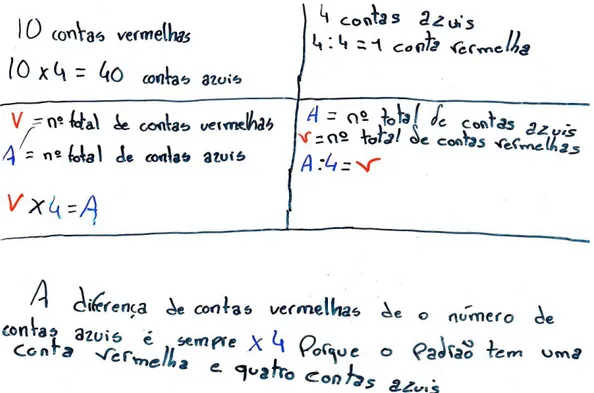 10 contas vermelhas
10 x 4 = 40 contas azuis
4 contas azuis
4 : 4 = 1 conta vermelha
V = nº total de contas vermelhas
A = nº total de contas azuis
V x 4 = A
A = nº total de contas azuis
V = nº total de contas vermelhas
A : 4 = V
A diferença de contas vermelhas de o número de
contas azuis é sempre x 4 Porque o Padrão tem uma
conta vermelha e quatro contas azuis